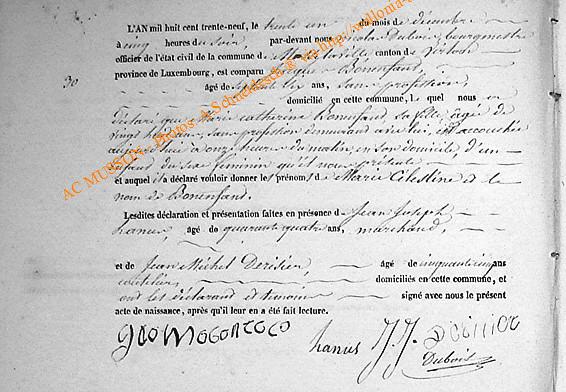 L'AN mil huit cent trente-neuf, le trente un du mois de décembre
à cinq heures du soir, par-devant nous Nicolas Dubois, bourgmestre
officier de l'état civil de la commune de canton de Virton
province de Luxembourg, est comparu Bonenfant,
30
âgé de septante six ans, sans profession
domicilié en cette commune, Le quel nous a
déclaré que Marie Catherine Bonenfand, sa fille, âgée de
vingt ans, sans profession demeurant avec lui, est accouchée
aujourd'hui à onze heures du matin en son domicile, d'un
enfant du sexe féminin qu'il nous présente
et auquel il a déclaré vouloir donner les prénoms de Marie Célestine et le
nom de Bonenfand.
Lesdites déclaration et présentation faites en présence de Jean Joseph
hanus, âgé de quarante quatre ans, marchand,
et de Jean Michel âgé de cinquante cinq ans
domiciliés en cette commune, et
ont les déclarant et témoins signé avec nous le présent
acte de naissance, après qu'il leur en a été fait lecture.
hanus JJ.
Dubois
AC MUSSON - Photos A. Schneidesch © via http://wallonia-